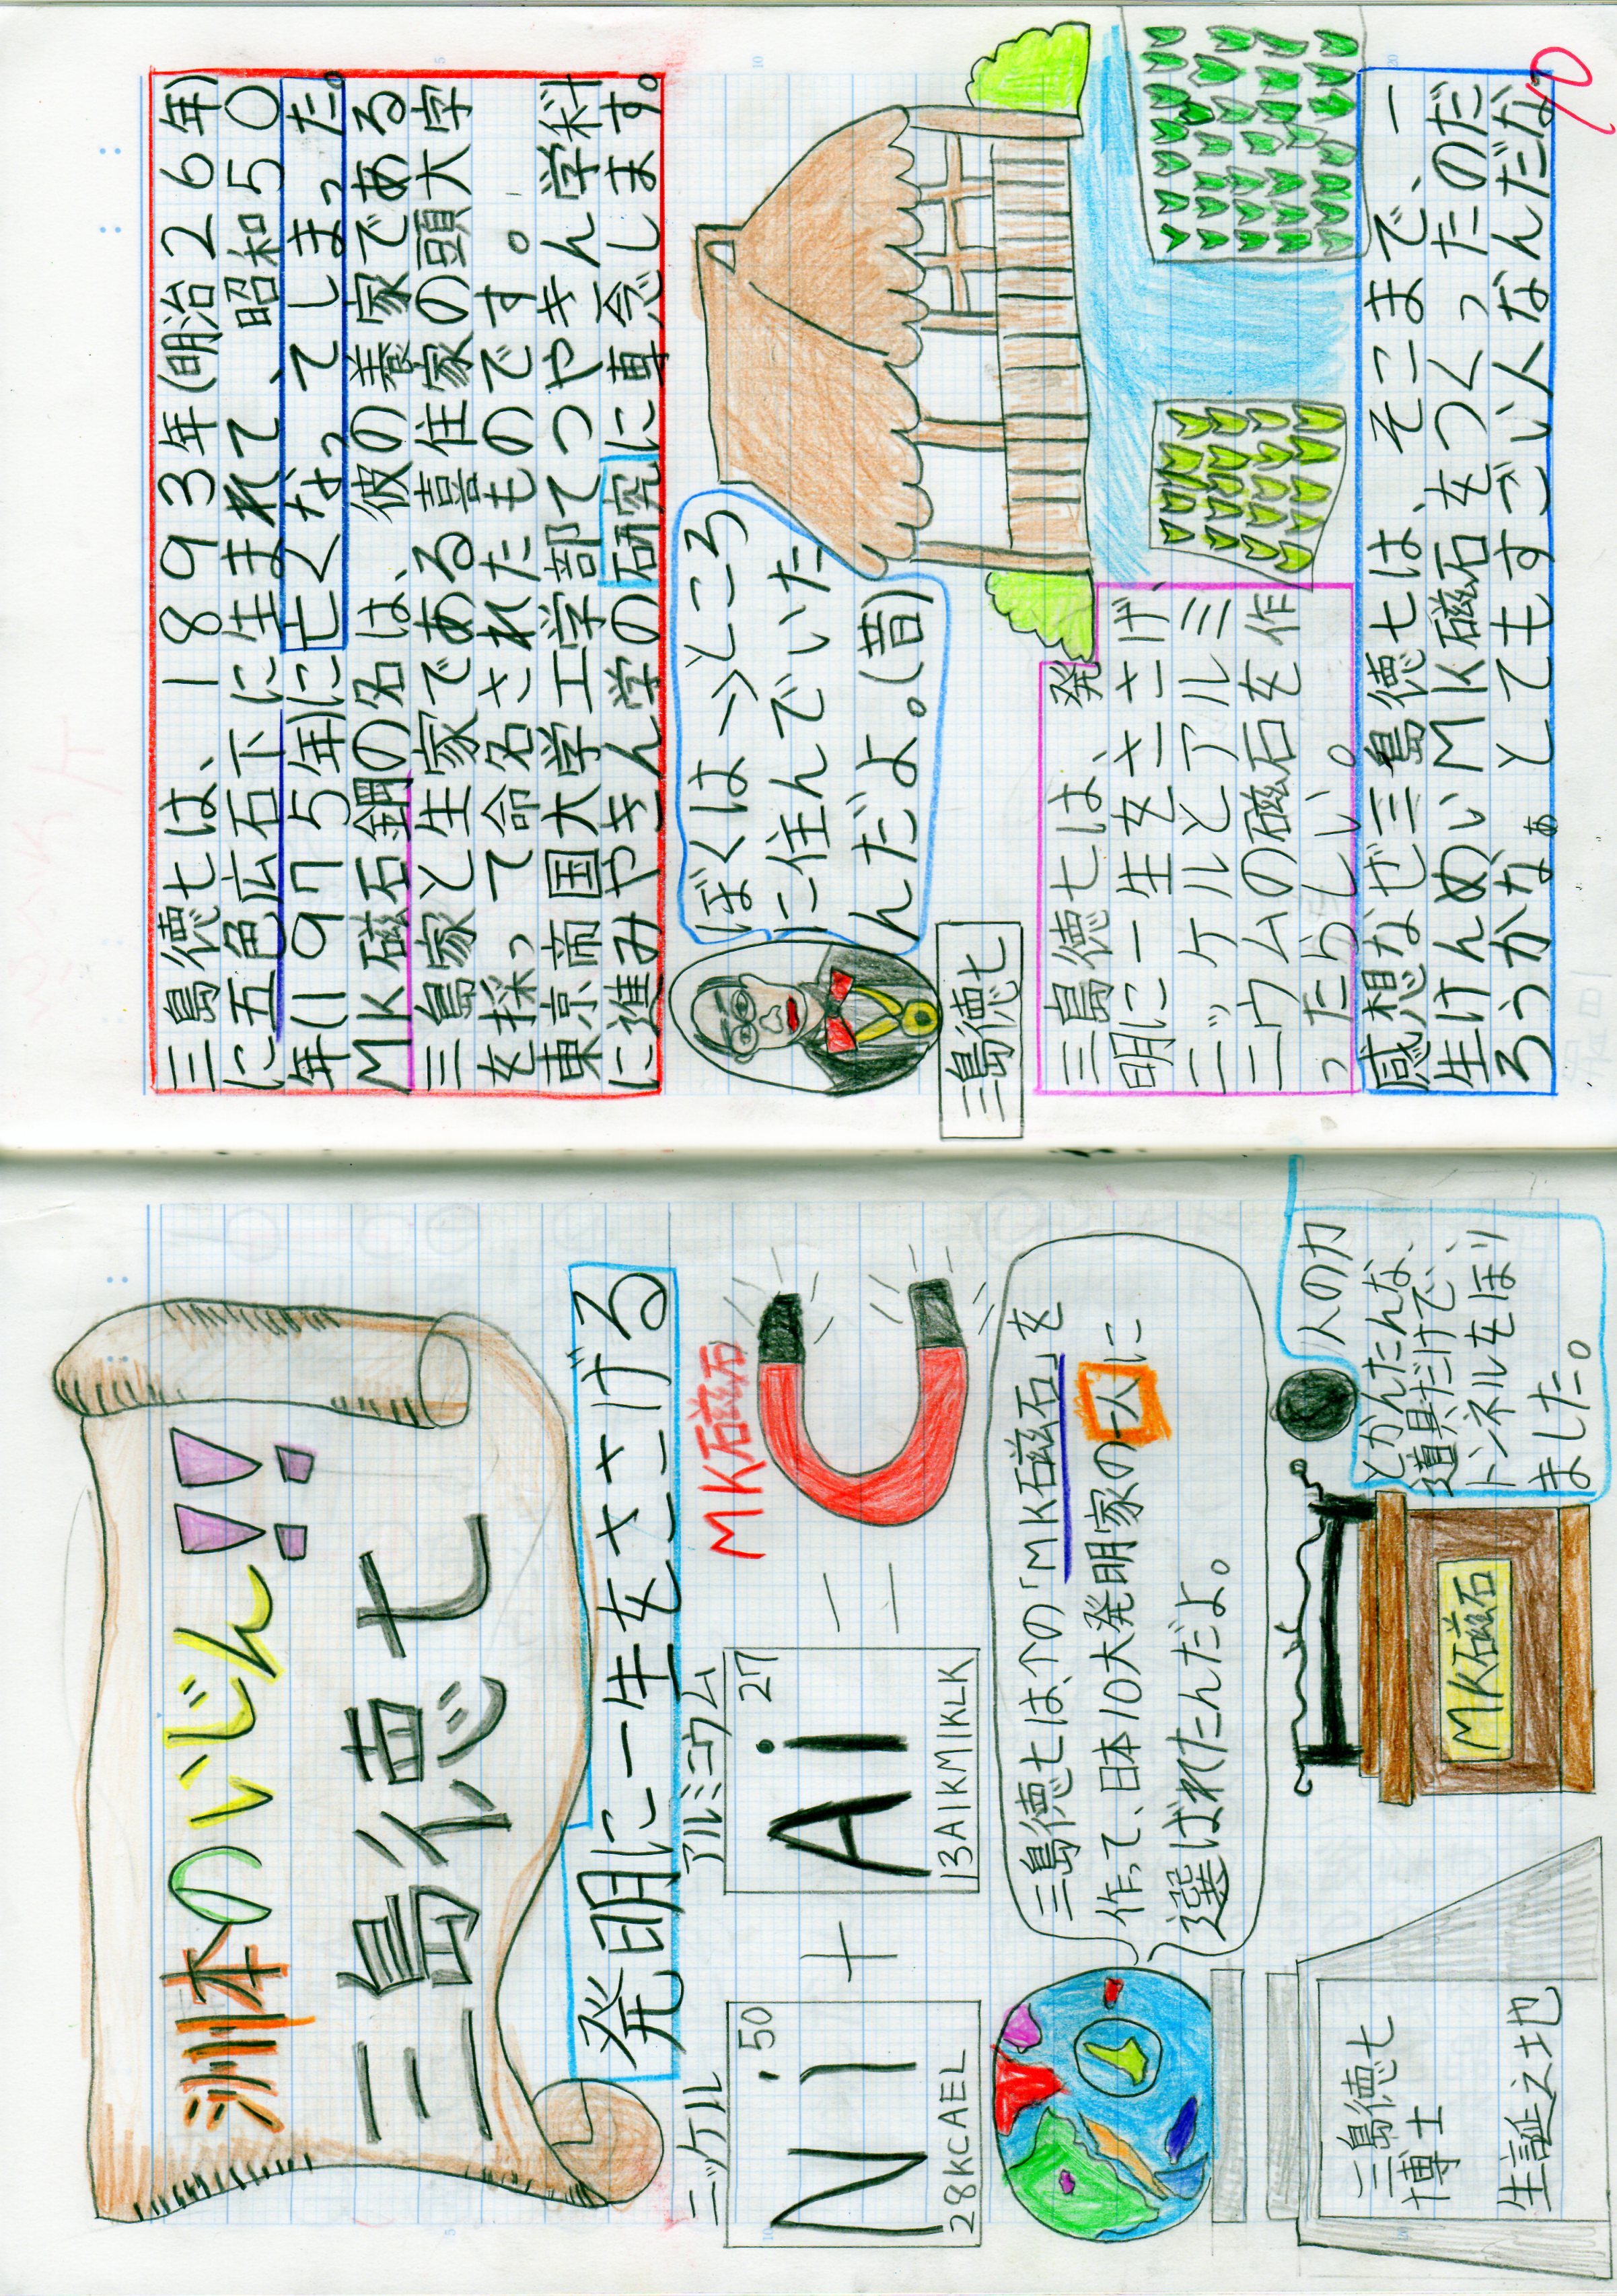 洲本のいじん!!
三島徳七
発明に一生をささげる
ニッケル
Ni
.50
28KCAEL
+
アルミニウム
Ai
27
13AIKMIKLK
=
MK磁石
三島徳七は、↑の「MK磁石」を
作って、日本10大発明家の一人に
選ばれたんだよ。
三島徳七
博士
生誕之地
MK磁石
人の力
とかんたんな、
道具だけで、
トンネルをほり
ました。
三島徳七は、1893年(明治26年)
に五色広石下に生まれて、昭和50
年(1975年)に亡くなってしまった。
MK磁石鋼の名は、彼の養家である
三島家と生家である喜住家の頭大字
を採って命名されたものです。
東京帝国大学工学部てつやきん学科
に進みやきん学の研究に専念します。
ぼくはこういうところ
に住んでいた
んだよ。(昔)
三島徳七
三島徳七は、発
明に一生をささげ、
ニッケルとアルミ
ニウムの磁石を作
ったらしい。
感想なぜ三島徳七は、そこまで、一
生けんめいMK磁石をつくったのだ
ろうかなぁとてもすごい人なんだな